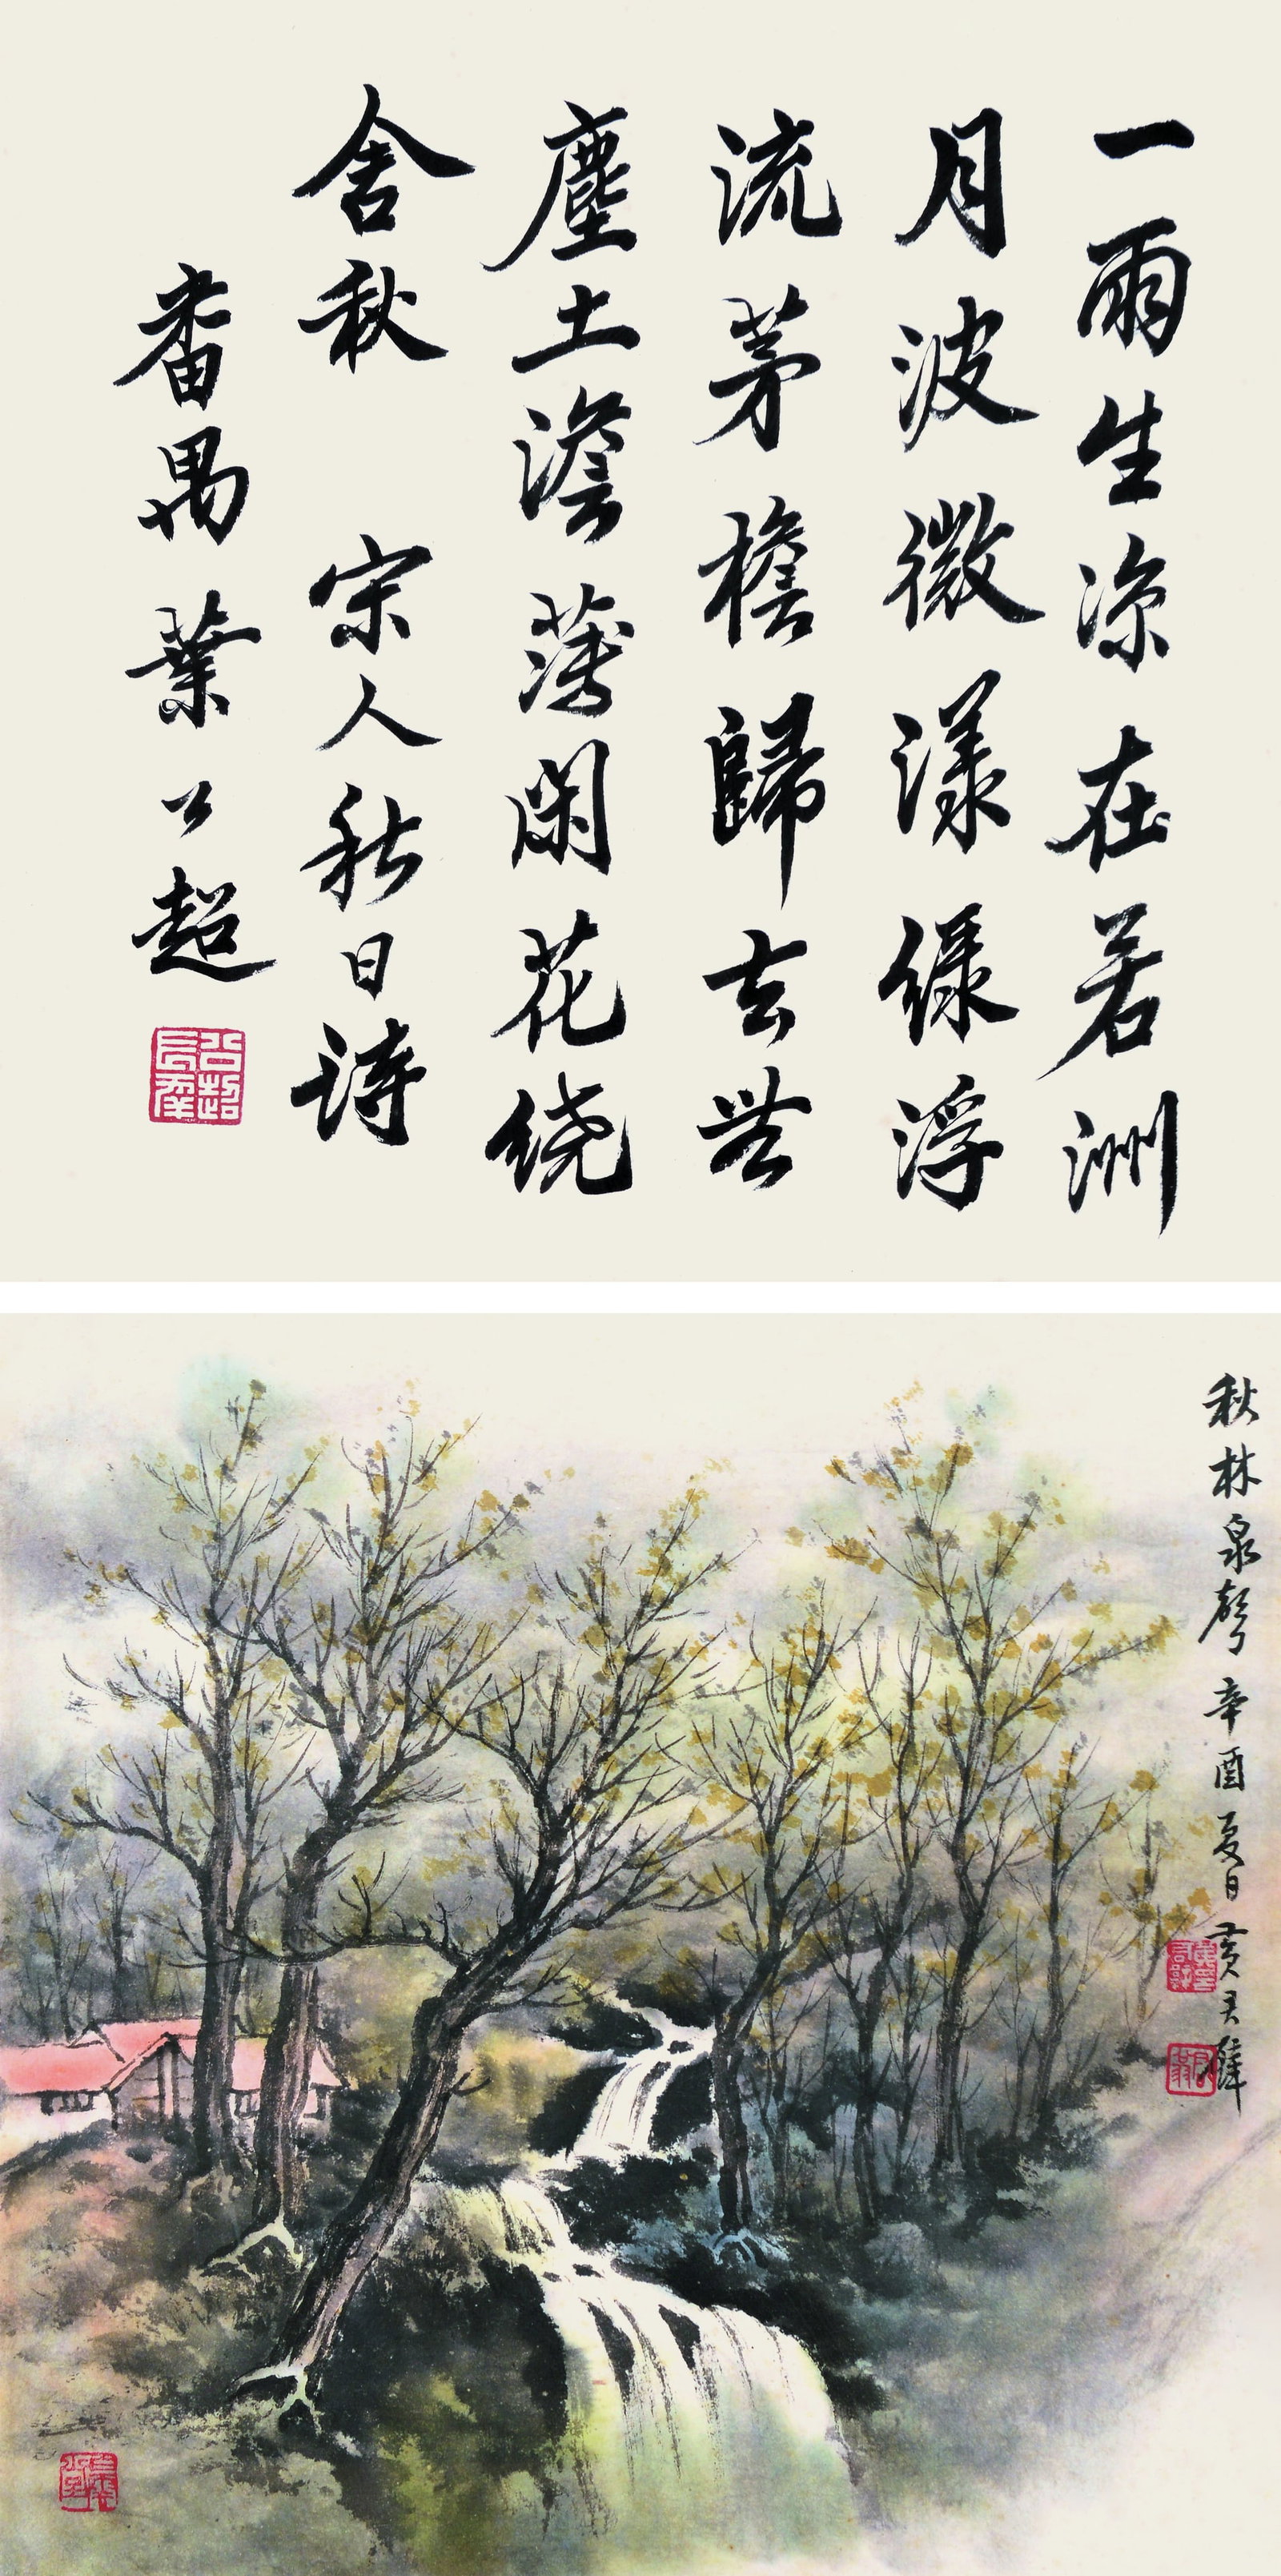 一雨生涼在若洲
月波微漾綠浮
流茅檐歸去無
塵土澹薄閑花繞
舍秋 宋人秋日詩
番禺葉公超
公超
秋林泉聲 辛酉夏日 黃君璧